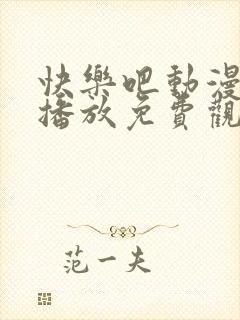 快樂吧動漫
播放免費觀
范一夫